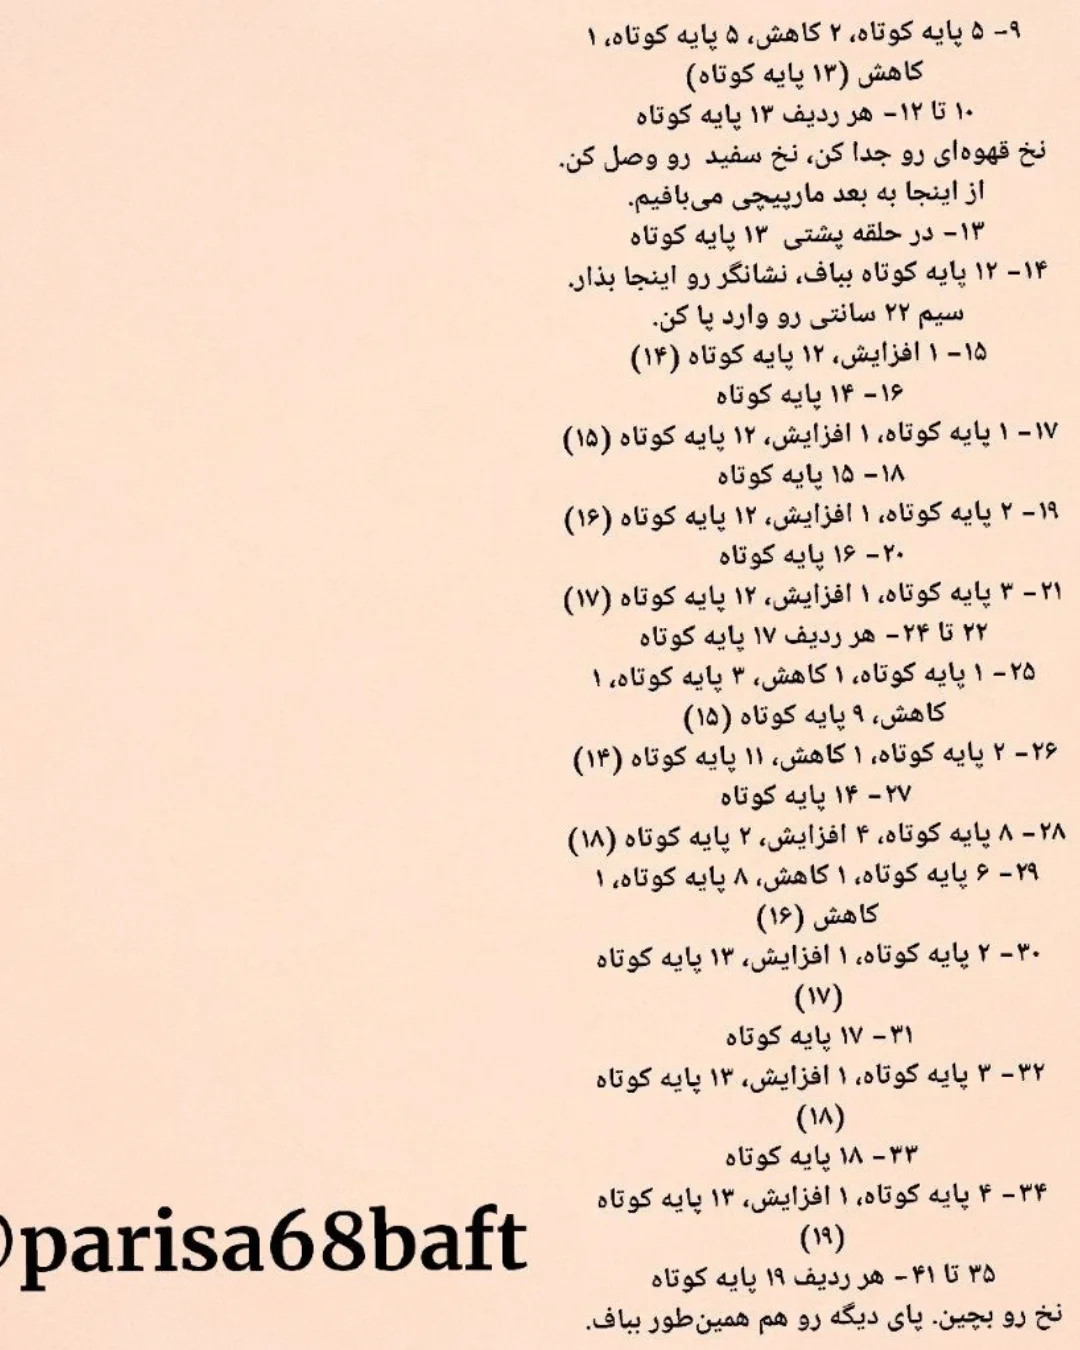 ۹- ۵ پایه کوتاه، ۲ کاهش، ۵ پایه کوتاه، ۱
کاهش (۱۳ پایه کوتاه)
۱۰ تا ۱۲- هر ردیف ۱۳ پایه کوتاه
نخ قهوه‌ای رو جدا کن، نخ سفید رو وصل کن.
از اینجا به بعد مارپیچی می‌بافیم.
۱۳- در حلقه پشتی ۱۳ پایه کوتاه
۱۴- ۱۲ پایه کوتاه بباف، نشانگر رو اینجا بذار.
سیم ۲۲ سانتی رو وارد پا کن.
۱۵- ۱ افزایش، ۱۲ پایه کوتاه (۱۴)
۱۶- ۱۴ پایه کوتاه
۱۷- ۱ پایه کوتاه، ۱ افزایش، ۱۲ پایه کوتاه (۱۵)
۱۸- ۱۵ پایه کوتاه
۱۹- ۲ پایه کوتاه، ۱ افزایش، ۱۲ پایه کوتاه (۱۶)
۲۰- ۱۶ پایه کوتاه
۲۱- ۳ پایه کوتاه، ۱ افزایش، ۱۲ پایه کوتاه (۱۷)
۲۲ تا ۲۴- هر ردیف ۱۷ پایه کوتاه
۲۵- ۱ پایه کوتاه، ۱ کاهش، ۳ پایه کوتاه، ۱
کاهش، ۹ پایه کوتاه (۱۵)
۲۶- ۲ پایه کوتاه، ۱ کاهش، ۱۱ پایه کوتاه (۱۴)
۲۷- ۱۴ پایه کوتاه
۲۸- ۸ پایه کوتاه، ۴ افزایش، ۲ پایه کوتاه (۱۸)
۲۹- ۶ پایه کوتاه، ۱ کاهش، ۸ پایه کوتاه، ۱
کاهش (۱۶)
۳۰- ۲ پایه کوتاه، ۱ افزایش، ۱۳ پایه کوتاه
(۱۷)
۳۱- ۱۷ پایه کوتاه
۳۲- ۳ پایه کوتاه، ۱ افزایش، ۱۳ پایه کوتاه
(۱۸)
۳۳- ۱۸ پایه کوتاه
۳۴- ۴ پایه کوتاه، ۱ افزایش، ۱۳ پایه کوتاه
(۱۹)
۳۵ تا ۴۱- هر ردیف ۱۹ پایه کوتاه
نخ رو بچین. پای دیگه رو هم همین‌طور بباف.
@parisa68baft